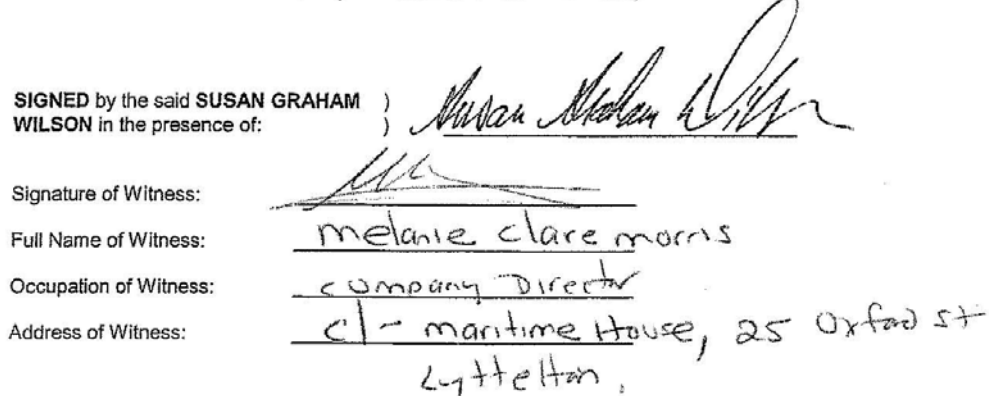 SIGNED by the said SUSAN GRAHAM )
WILSON in the presence of: ) Susan Graham Wilson
Signature of Witness:
Full Name of Witness: melanie clare morris
Occupation of Witness: company Director
Address of Witness: c/- maritime House, 25 Oxford st
Lyttelton.